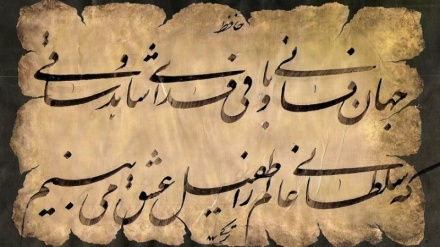 حافظ
جهان فانی و باقی فدای شاهد و ساقی
که سلطانی عالم را طفیل عشق می بینم